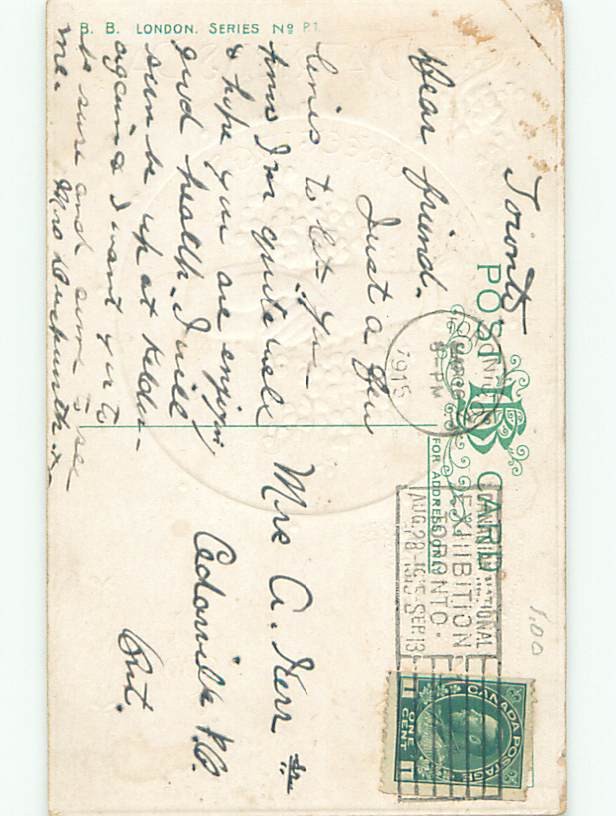 B. B. LONDON. SERIES No P.1.
POST CARD
FOR ADDRESS ONLY
Toronto
Dear friend.
Just a few
lines to let you
know I'm quite well
& hope you are enjoying
good health. I will
soon be up at
again & I want you to
be sure and come to see
me. Mrs
Mrs A. Kerr
Cedarville P.O.
Ont.
TORONTO
PM
1915
NATIONAL
EXHIBITION
TORONTO.
AUG. 28-1915-SEP. 13
CANADA POSTAGE
1 ONE CENT 1
1.00